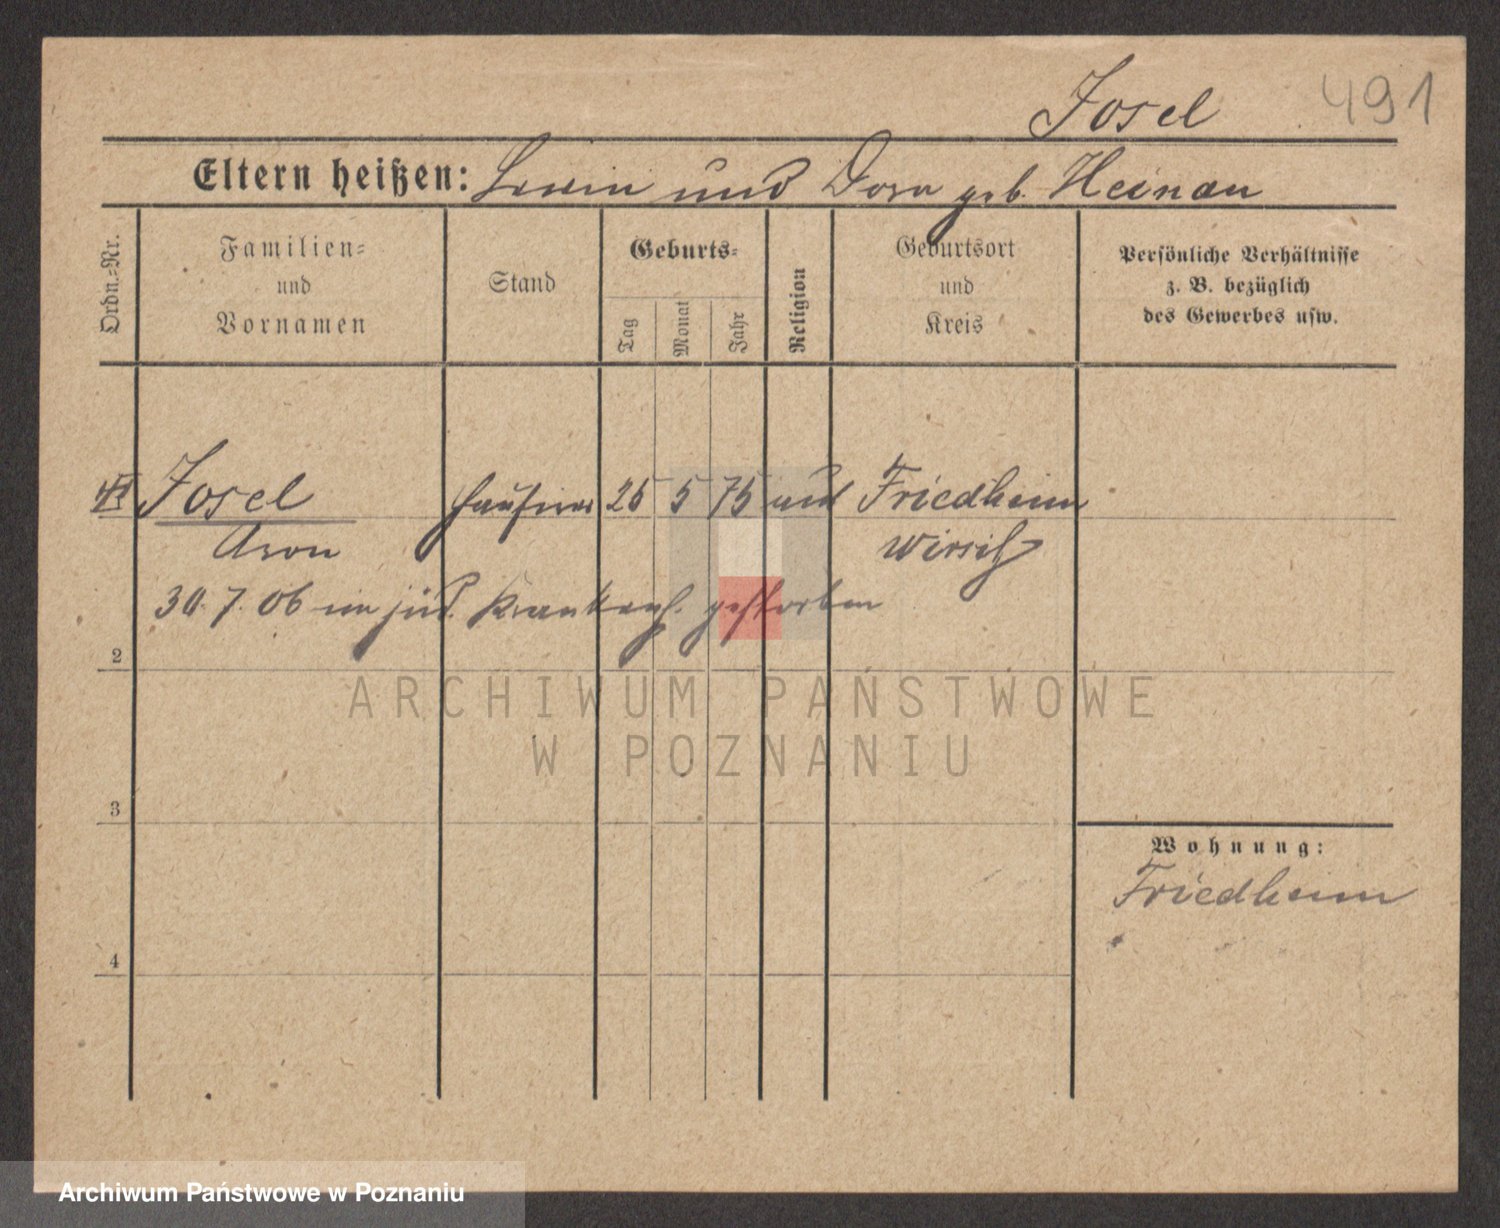 Josel 491
Eltern heißen: Lewin und Dora geb. Heinan
Ordn.-Nr.
Familien-
und
Vornamen
Stand
Geburts-
Tag
Monat
Jahr
Religion
Geburtsort
und
Kreis
Persönliche Verhältnisse
z. B. bezüglich
des Gewerbes usw.
Josel Hausierer 25 5 75 Friedheim
Aron Wirsitz
30. 7. 06 im jüd. Krankenh. gestorben
2
ARCHIWUM PAŃSTWOWE
W POZNANIU
3
Wohnung:
Friedheim
4
Archiwum Państwowe w Poznaniu